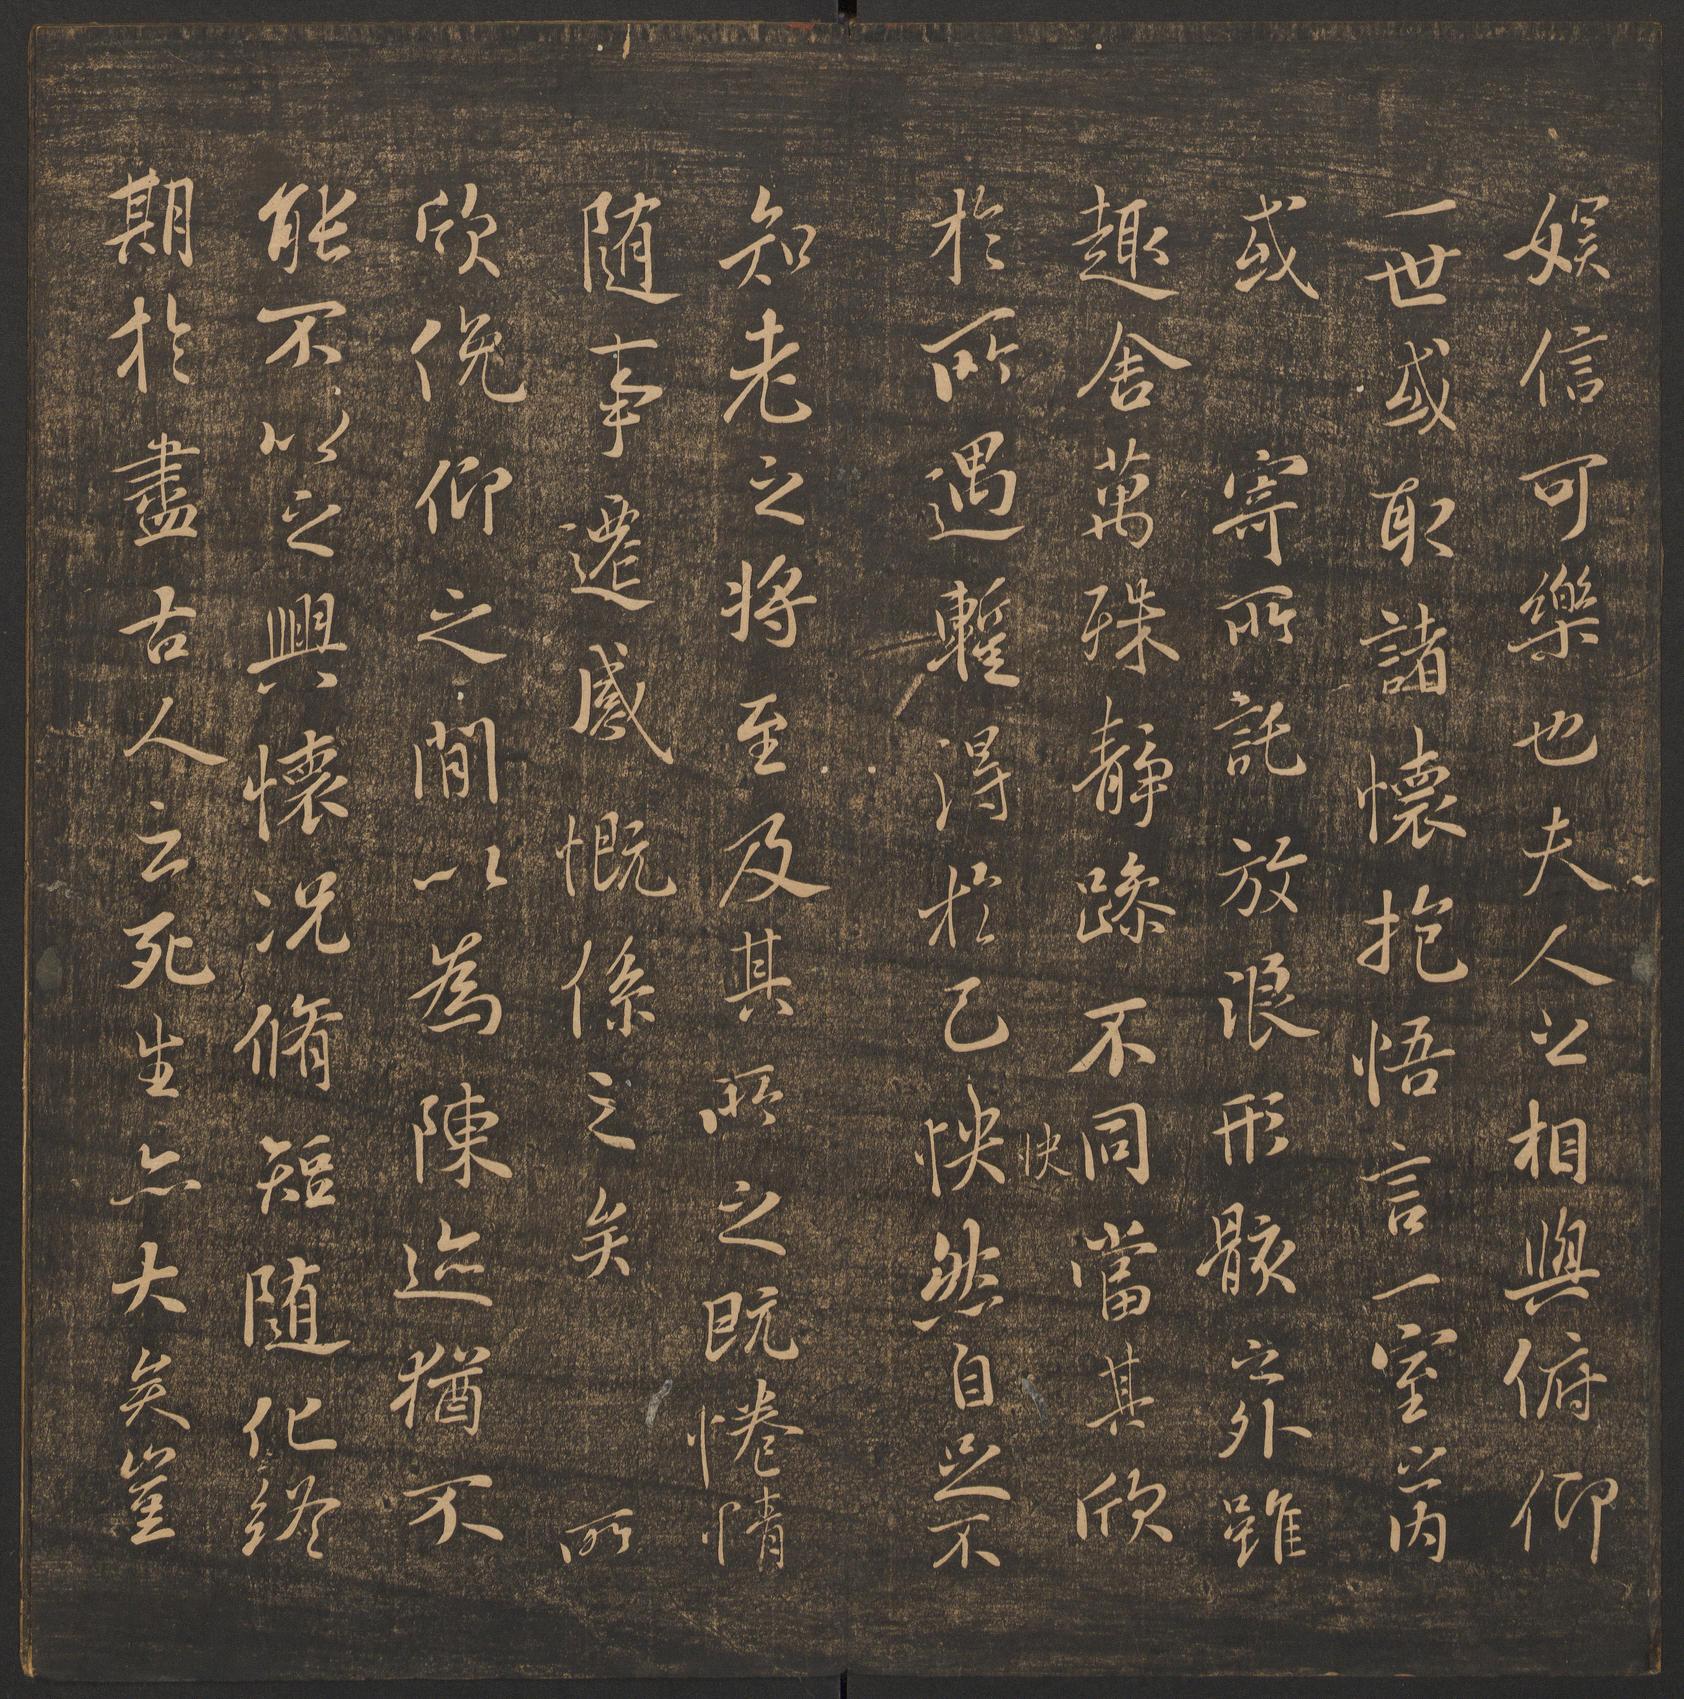 娛信可樂也夫人之相與俯仰
一世或取諸懷抱悟言一室之內
或寄所託放浪形骸之外雖
趣舍萬殊靜躁不同當其欣
於所遇暫得於己怏然自足不
快
知老之將至及其所之既惓情
随事遷感慨係之矣所
欣俛仰之間以為陳迹猶不
能不以之興懷況脩短随化終
期於盡古人云死生亦大矣豈